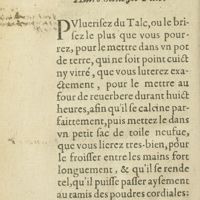 PVluerisez du Talc, ou le bri
sez le plus que vous pour-
rez, pour le mettre dans vn pot
de terre, qui ne soit point cuict
ny vitré, que vous luterez exa-
ctement, pour le mettre au
four de reuerbere durant huict
heures, afin qu'il se calcine par-
faittement, puis mettez le dans
vn petit sac de toile neufue,
que vous lierez tres-bien, pour
le froisser entre les mains fort
longuement, & qu'il se rende
tel, qu'il puisse passer aysement
au tamis des poudres cordiales: